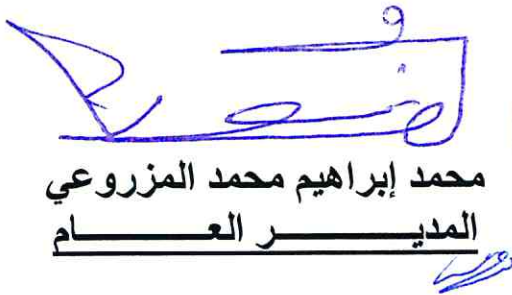 محمد إبراهيم محمد المزروعي
المديــــــر العـــــــام